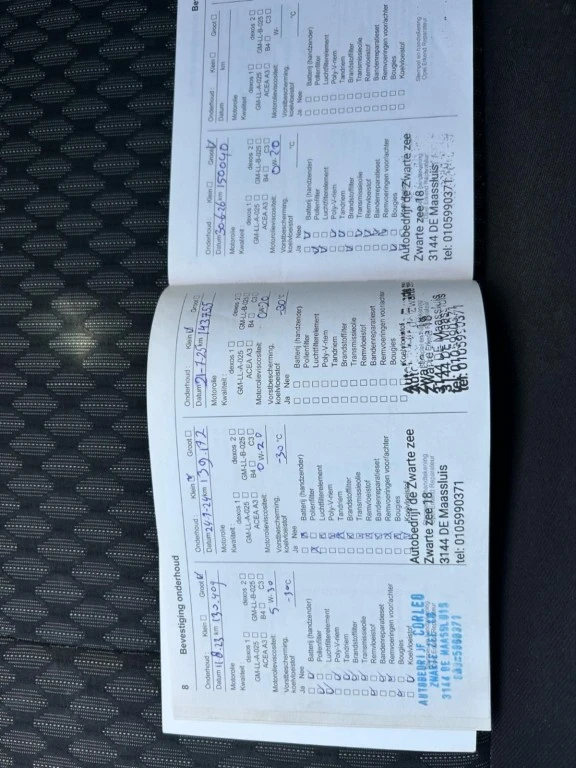 8 Bevestiging onderhoud
Onderhoud Klein Groot
Datum 11-8-23 km 130.409
Motorolie
Kwaliteit dexos 1 dexos 2
GM-LL-A-025 GM-LL-B-025
ACEA A3 B4 C3
Motorolieviscositeit 5 W-30
Vorstbescherming, koelvloeistof -30 °C
Ja Nee
Batterij (handzender)
Pollenfilter
Luchtfilterelement
Poly-V-riem
Tandriem
Brandstoffilter
Transmissieolie
Remvloeistof
Bandenreparatieset
Remvoeringen voor/achter
Bougies
Koelvloeistof
AUTOBEDRIJF CORLEO
ZWARTE ZEE
3144 DE MAASSLUIS
Onderhoud Klein Groot
Datum 24-7-24 km 139.192
Motorolie
Kwaliteit dexos 1 dexos 2
GM-LL-A-025 GM-LL-B-025
ACEA A3 B4 C3
Motorolieviscositeit 0 W-20
Vorstbescherming, koelvloeistof -30 °C
Ja Nee
Batterij (handzender)
Pollenfilter
Luchtfilterelement
Poly-V-riem
Tandriem
Brandstoffilter
Transmissieolie
Remvloeistof
Bandenreparatieset
Remvoeringen voor/achter
Bougies
Autobedrijf de Zwarte zee
Zwarte zee 18
3144 DE Maassluis
tel: 0105990371
Onderhoud Klein Groot
Datum 21-7-25 km 143.755
Motorolie
Kwaliteit dexos 1 dexos 2
GM-LL-A-025 GM-LL-B-025
ACEA A3 B4 C3
Motorolieviscositeit 0W20
Vorstbescherming, koelvloeistof
Ja Nee
Batterij (handzender)
Pollenfilter
Luchtfilterelement
Poly-V-riem
Tandriem
Brandstoffilter
Transmissieolie
Remvloeistof
Bandenreparatieset
Remvoeringen voor/achter
Bougies
Koelvloeistof
3144 DE Maassluis
tel: 0105990371
Onderhoud Klein Groot
Datum 30-6-26 km 150040
Motorolie
Kwaliteit dexos 1 dexos 2
GM-LL-A-025 GM-LL-B-025
ACEA A3 B4 C3
Motorolieviscositeit 0 W-20
Vorstbescherming, koelvloeistof °C
Ja Nee
Batterij (handzender)
Pollenfilter
Luchtfilterelement
Poly-V-riem
Tandriem
Brandstoffilter
Transmissieolie
Remvloeistof
Bandenreparatieset
Remvoeringen voor/achter
Bougies
Autobedrijf de Zwarte zee
Zwarte zee 18
3144 DE Maassluis
tel: 0105990371
Be
Onderhoud Klein Groot
Datum km
Motorolie
Kwaliteit dexos 1 dexos 2
GM-LL-A-025 GM-LL-B-025
ACEA A3 B4 C3
Motorolieviscositeit W-
Vorstbescherming, koelvloeistof °C
Ja Nee
Batterij (handzender)
Pollenfilter
Luchtfilterelement
Poly-V-riem
Tandriem
Brandstoffilter
Transmissieolie
Remvloeistof
Bandenreparatieset
Remvoeringen voor/achter
Bougies
Koelvloeistof